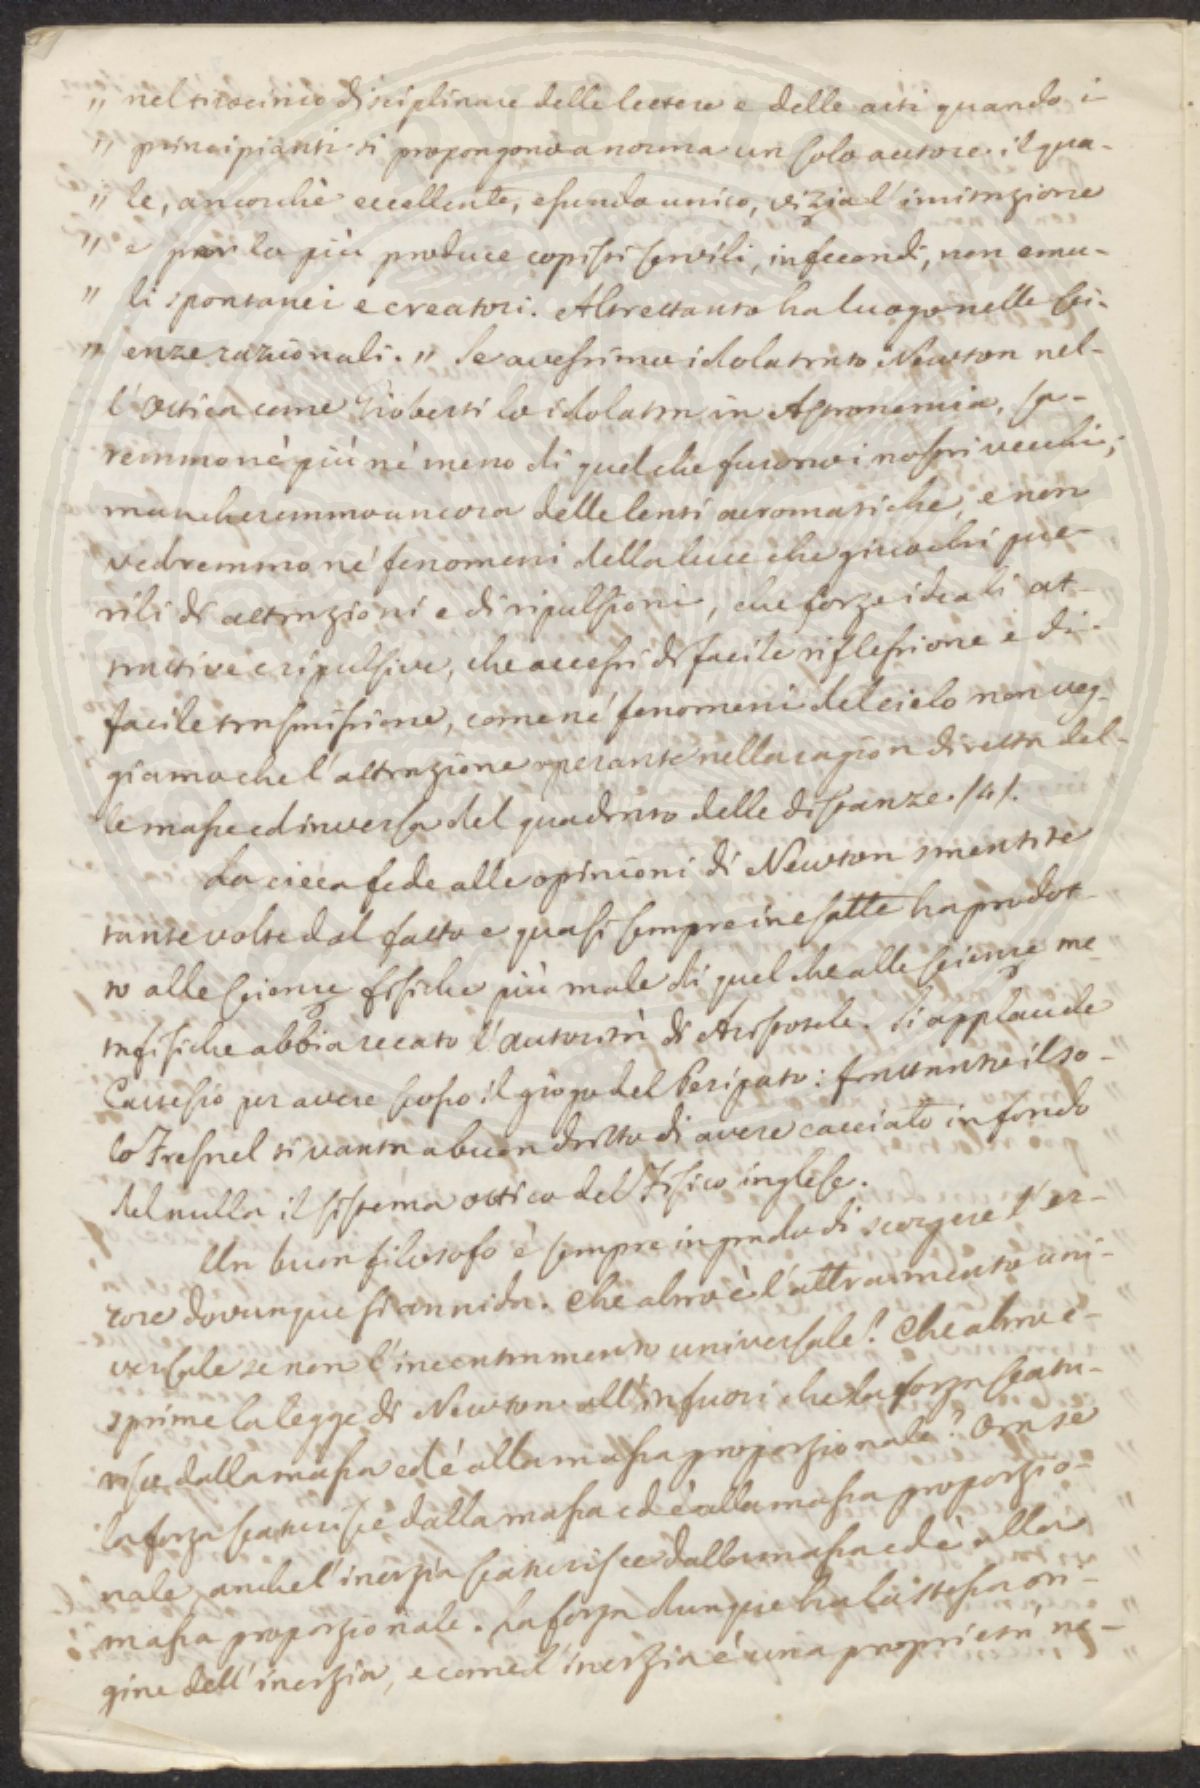 „ nel tirocinio disciplinare delle lettere e delle arti quando i
„ principianti si propongono a norma un solo autore. il qua-
„ le, ancorchè eccellente, essendo unico, vizia l'imitazione
„ e per lo più produce copisti servili, infecondi, non emu-
„ li spontanei e creatori. Altrettanto ha luogo nelle Sci-
„ enze razionali. „ Se avessimo idolatrato Newton nel-
l'Ottica come Gioberti lo idolatra in Astronomia, sa-
remmo nè più nè meno di quel che furono i nostri vecchi;
mancheremmo ancora delle lenti acromatiche, e non
vedremmo né fenomeni della luce che giuochi pue-
rili di attrazioni e di ripulsioni, che forze ideali at-
trattive e ripulsive, che accessi di facile riflessione e di
facile trasmissione, come né fenomeni del cielo non veg-
giamo che l'attrazione operante nella ragion diretta del-
le masse ed inversa del quadrato delle distanze. (4).
La cieca fede alle opinioni di Newton smentite
tante volte dal fatto e quasi sempre inesatte ha prodot-
to alle scienze fisiche più male di quel che alle scienze me
tafisiche abbia recato l'autorità di Aristotele. Si applaude
Cartesio per avere scosso il giogo del Peripato: frattanto il so-
lo Fresnel si vanta a buon dritto di avere cacciato in fondo
del nulla il sistema ottico del Fisico inglese.
Un buon filosofo è sempre in grado di scorgere l'er-
rore dovunque si annida. Che altro è l'attramento uni-
versale se non l'incentramento universale? Che altro e-
sprime la legge di Newton all'infuori che la forza scatu-
risce dalla massa ed è alla massa proporzionale? Ora se
la forza scaturisce dalla massa ed è alla massa proporzio-
nale, anche l'inerzia scaturisce dalla massa ed è alla
massa proporzionale. La forza dunque ha la stessa ori-
gine dell'inerzia, e come l'inerzia è una proprietà ne-